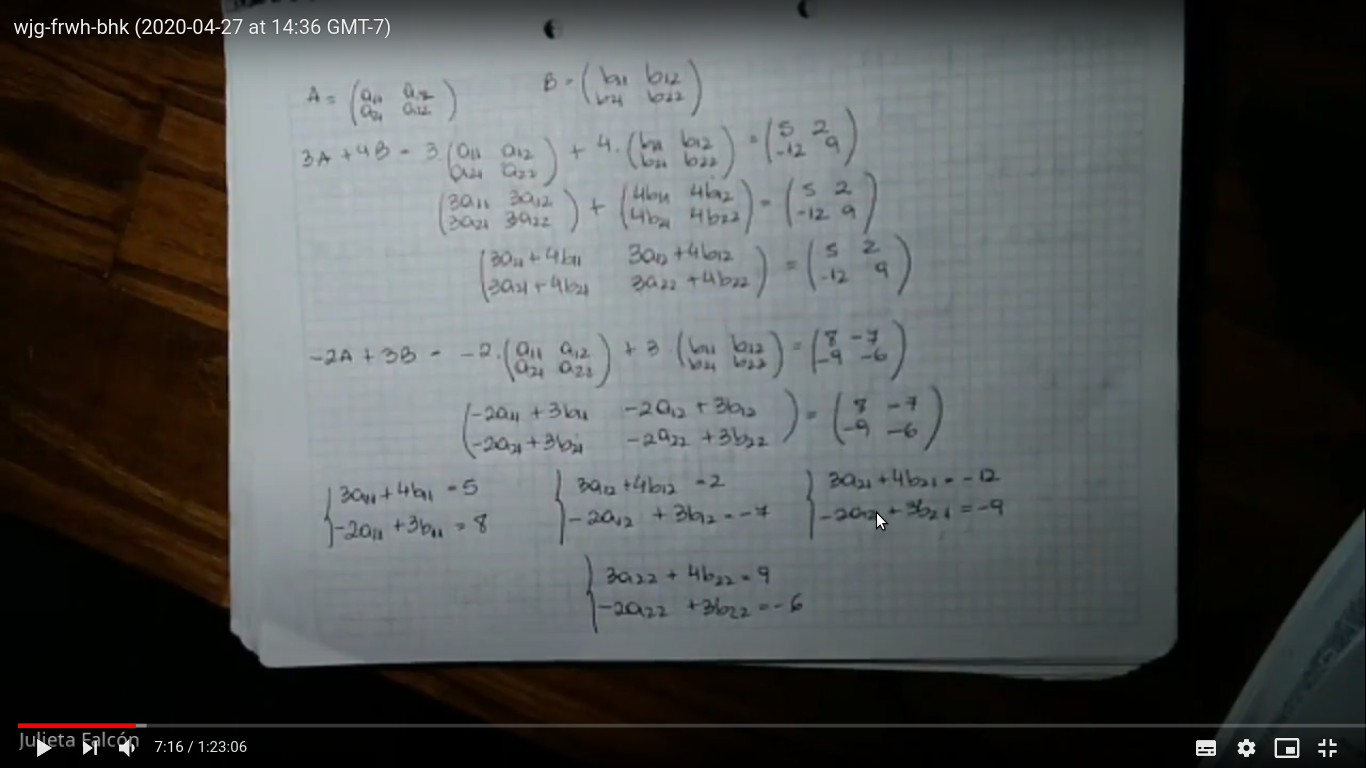 wjg-frwh-bhk (2020-04-27 at 14:36 GMT-7)
A = (a11 a12
a21 a22) B = (b11 b12
b21 b22)
3A + 4B = 3·(a11 a12
a21 a22) + 4·(b11 b12
b21 b22) = (5 2
-12 9)
(3a11 3a12
3a21 3a22) + (4b11 4b12
4b21 4b22) = (5 2
-12 9)
(3a11 + 4b11 3a12 + 4b12
3a21 + 4b21 3a22 + 4b22) = (5 2
-12 9)
-2A + 3B = -2·(a11 a12
a21 a22) + 3·(b11 b12
b21 b22) = (8 -7
-9 -6)
(-2a11 + 3b11 -2a12 + 3b12
-2a21 + 3b21 -2a22 + 3b22) = (8 -7
-9 -6)
{3a11 + 4b11 = 5
-2a11 + 3b11 = 8
{3a12 + 4b12 = 2
-2a12 + 3b12 = -7
{3a21 + 4b21 = -12
-2a21 + 3b21 = -9
{3a22 + 4b22 = 9
-2a22 + 3b22 = -6
Julieta Falcón
7:16 / 1:23:06